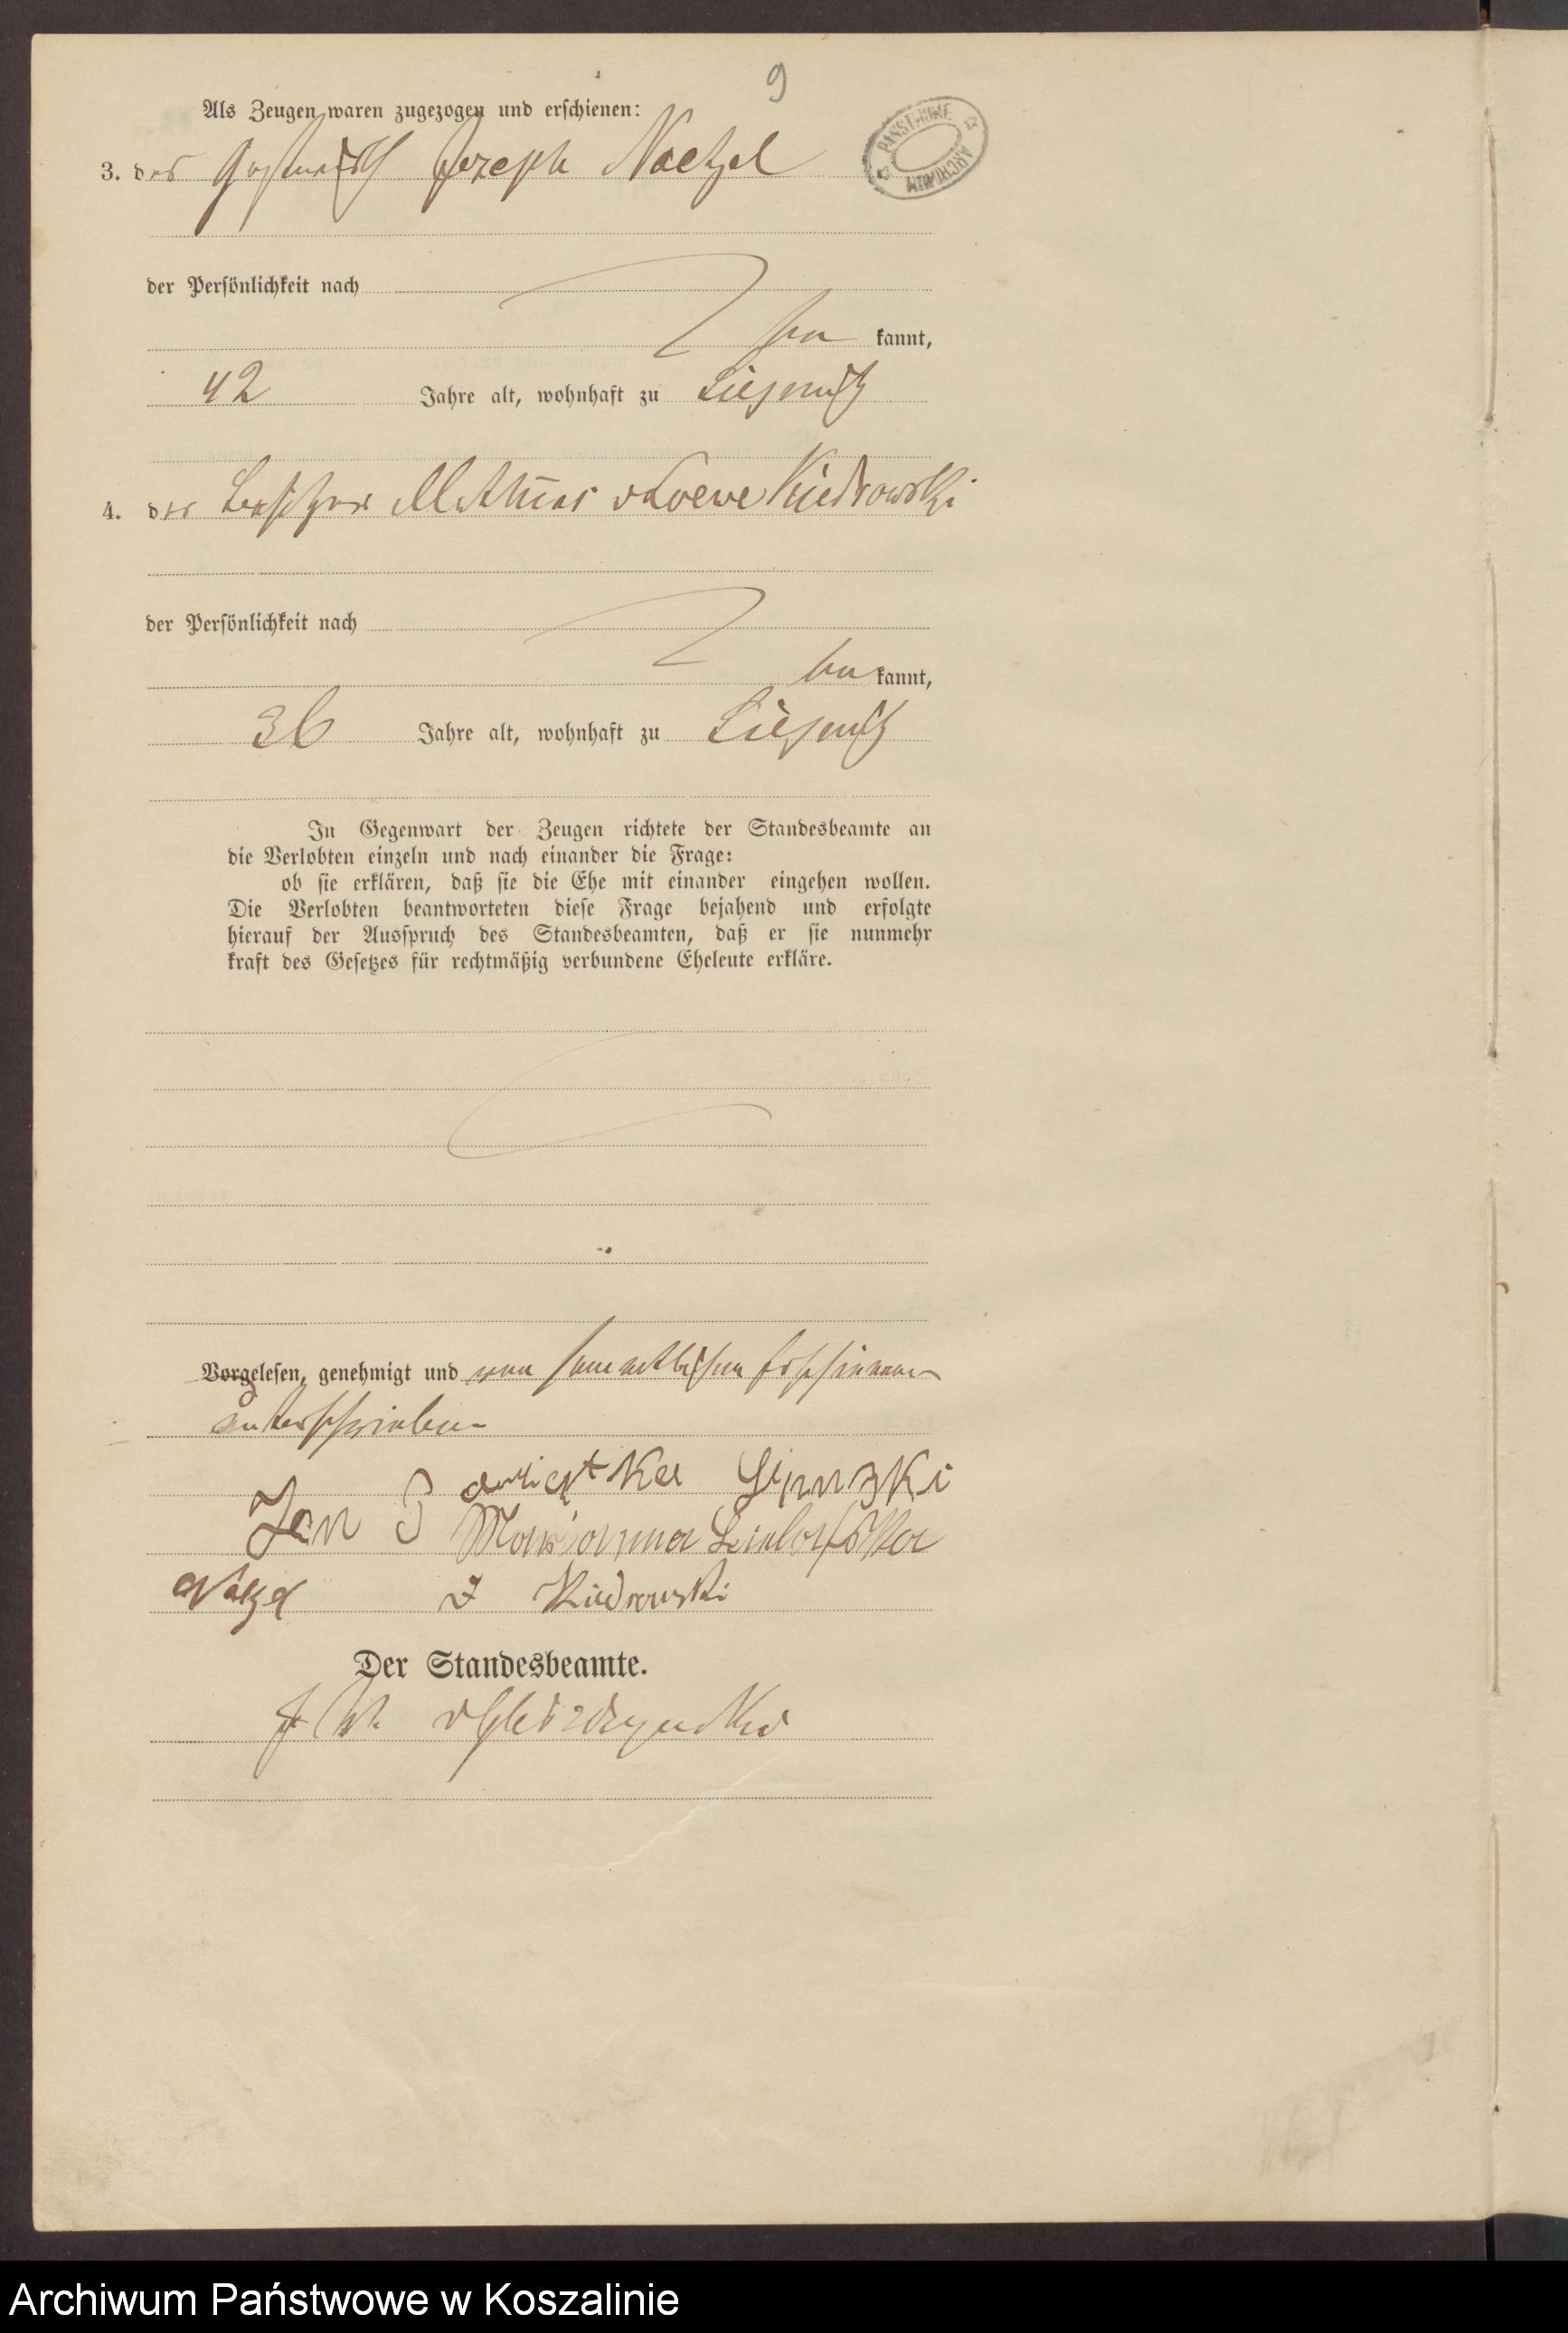 9
Als Zeugen waren zugezogen und erschienen:
PAŃSTWOWE ARCHIWUM
3. der Gastwirth Joseph Naetzel
der Persönlichkeit nach
be kannt,
42 Jahre alt, wohnhaft zu Liepnitz
4. der Besitzer Mathias v Loewe Kiedrowski
der Persönlichkeit nach
be kannt,
36 Jahre alt, wohnhaft zu Liepnitz
In Gegenwart der Zeugen richtete der Standesbeamte an
die Verlobten einzeln und nach einander die Frage:
ob sie erklären, daß sie die Ehe mit einander eingehen wollen.
Die Verlobten beantworteten diese Frage bejahend und erfolgte
hierauf der Ausspruch des Standesbeamten, daß er sie nunmehr
kraft des Gesetzes für rechtmäßig verbundene Eheleute erkläre.
Vorgelesen, genehmigt und von sämmtlichen Erschienenen
unterschrieben
Jan
Marianna
Kiedrowski
Der Standesbeamte.
Archiwum Państwowe w Koszalinie